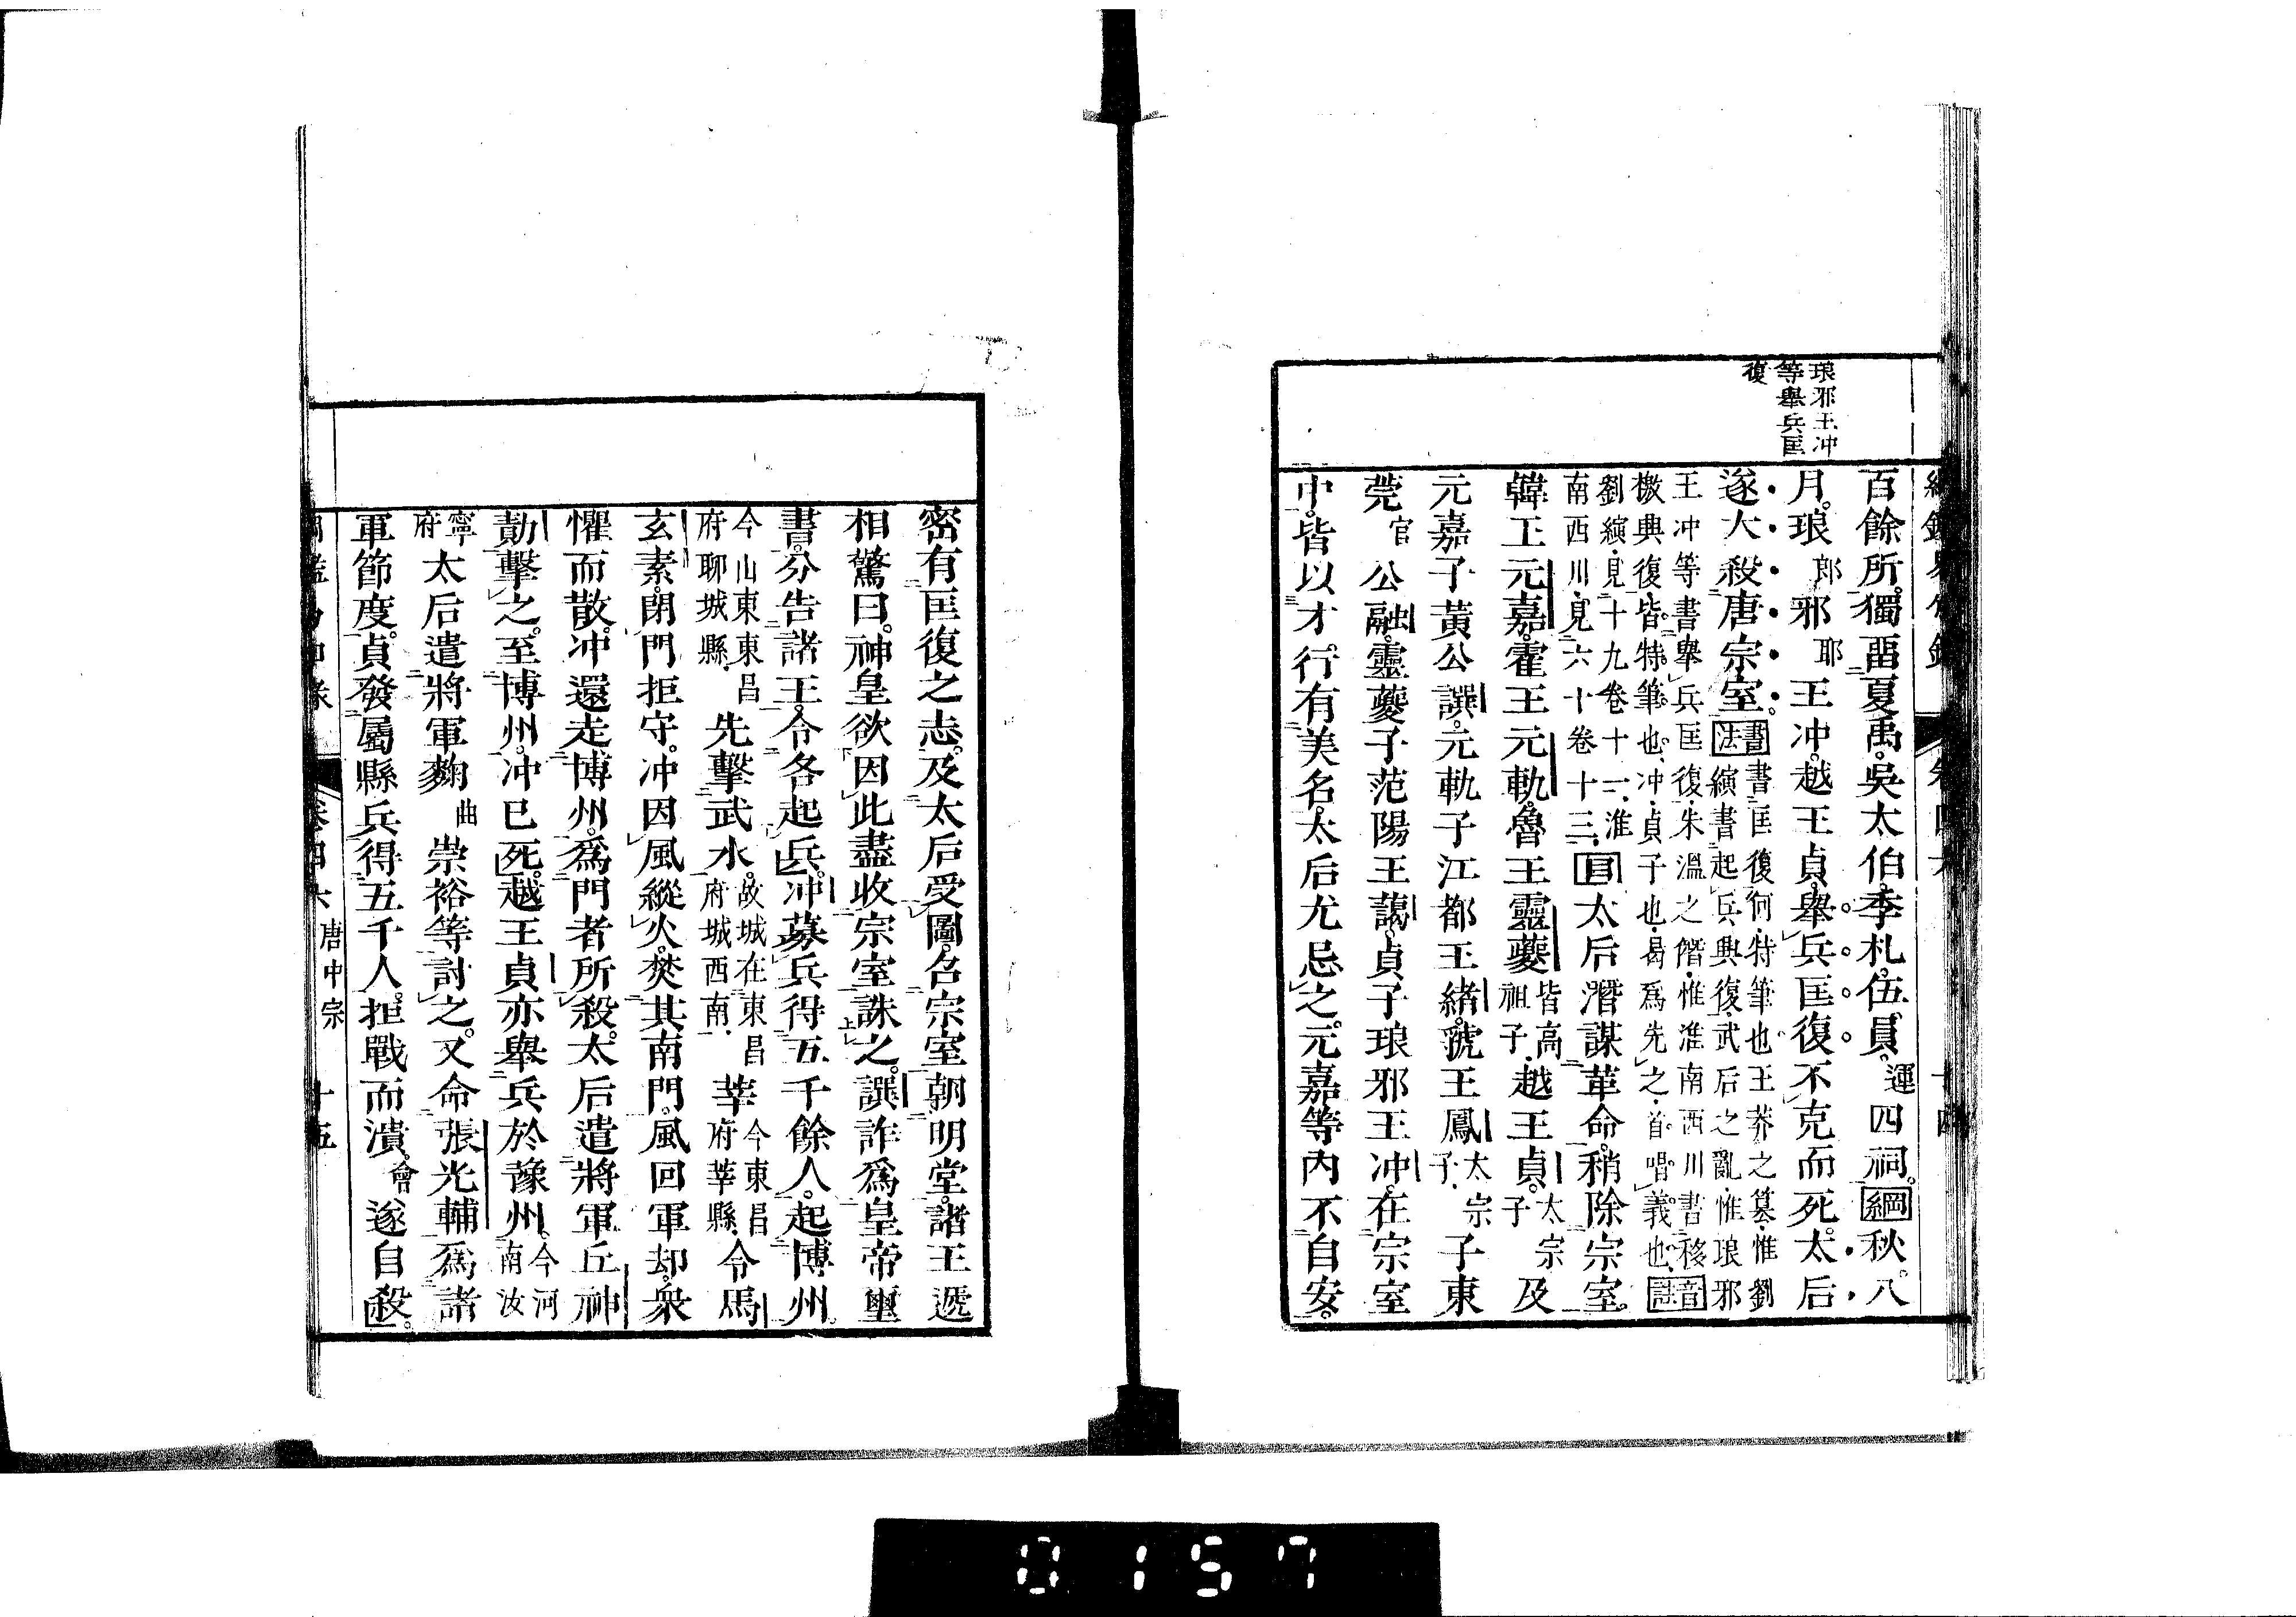 琅邪王冲
等舉兵匡
復
百餘所。獨畱夏禹。吳太伯。季札。伍員。運四祠。綱秋。八
月。琅郎邪耶王冲。越王貞。舉兵匡復。不克而死。太后
遂大殺唐宗室。書法書匡復何。特筆也。王莽之篡。惟劉
縯書起兵興復。武后之亂。惟琅邪
王冲等書舉兵匡復。朱溫之僭。惟淮南西川書移
檄興復。皆特筆也。冲。貞子也。曷爲先之。首唱義也。音註
劉縯。見十九卷十一。淮
南西川。見六十卷十三。目太后潛謀革命。稍除宗室。
韓王元嘉。霍王元軌。魯王靈夔皆高祖子。越王貞。太宗子及
元嘉子黃公譔。元軌子江都王緒。虢王鳳太宗子。子東
莞官公融。靈夔子范陽王藹。貞子琅邪王冲。在宗室
中。皆以才行有美名。太后尤忌之。元嘉等內不自安。
密有匡復之志。及太后受圖。名宗室朝明堂。諸王遞
相驚曰。神皇欲因此盡收宗室誅之。譔詐爲皇帝璽
書。分告諸王。令各起兵。冲募兵得五千餘人。起博州。
今山東東昌府聊城縣。先擊武水。故城在東昌府城西南。莘今東昌府莘縣。令馬
玄素。閉門拒守。冲因風縱火。焚其南門。風回軍却。衆
懼而散。冲還走博州。爲門者所殺。太后遣將軍丘神
勣擊之。至博州。冲已死。越王貞亦舉兵於豫州。今河南汝
寧府太后遣將軍麴曲崇裕等討之。又命張光輔爲諸
軍節度。貞發屬縣兵得五千人。拒戰而潰。會遂自殺。
卷四六 唐中宗 十五
0157